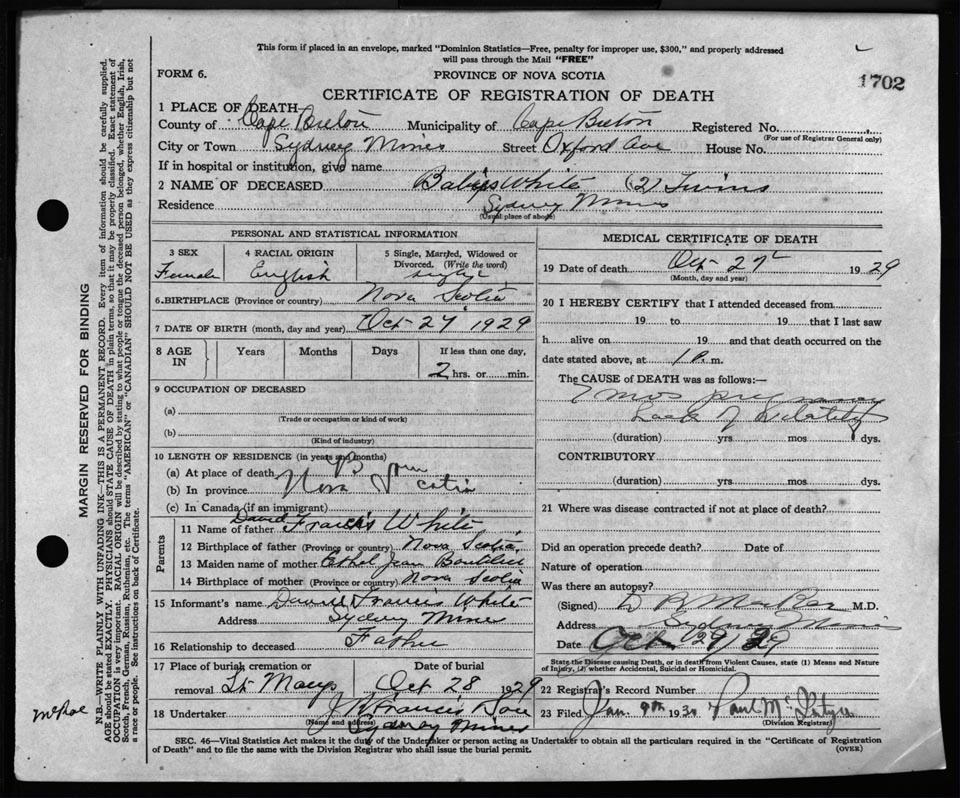 This form if placed in an envelope, marked "Dominion Statistics—Free, penalty for improper use, $300," and properly addressed
will pass through the Mail "FREE"
FORM 6.
PROVINCE OF NOVA SCOTIA
1702
CERTIFICATE OF REGISTRATION OF DEATH
1 PLACE OF DEATH
County of Cape Breton Municipality of Cape Breton Registered No.
(For use of Registrar General only)
City or Town Sydney Mines Street Oxford Ave House No.
If in hospital or institution, give name
2 NAME OF DECEASED Babies White (2) Twins
Residence Sydney Mines
(Usual place of abode)
PERSONAL AND STATISTICAL INFORMATION
3 SEX Female
4 RACIAL ORIGIN English
5 Single, Married, Widowed or Divorced. (Write the word) single
6. BIRTHPLACE (Province or country) Nova Scotia
7 DATE OF BIRTH (month, day and year) Oct 27 1929
8 AGE IN Years Months Days If less than one day, 2 hrs. or min.
9 OCCUPATION OF DECEASED
(a)
(Trade or occupation or kind of work)
(b)
(Kind of industry)
10 LENGTH OF RESIDENCE (in years and months)
(a) At place of death Born
(b) In province Nova Scotia
(c) In Canada (if an immigrant)
Parents
11 Name of father David Francis White
12 Birthplace of father (Province or country) Nova Scotia
13 Maiden name of mother Ethel Jean Boutilier
14 Birthplace of mother (Province or country) Nova Scotia
15 Informant's name David Francis White
Address Sydney Mines
16 Relationship to deceased Father
17 Place of burial, cremation or removal St Marys
Date of burial Oct 28 1929
18 Undertaker Francis
(Name and address) Sydney Mines
MEDICAL CERTIFICATE OF DEATH
19 Date of death Oct 27 1929
(Month, day and year)
20 I HEREBY CERTIFY that I attended deceased from
19 to 19 that I last saw
h alive on 19 and that death occurred on the
date stated above, at 1 P. m.
The CAUSE OF DEATH was as follows:—
mos pregnancy
Lack of
(duration) yrs mos dys.
CONTRIBUTORY
(duration) yrs mos dys.
21 Where was disease contracted if not at place of death?
Did an operation precede death? Date of
Nature of operation
Was there an autopsy?
(Signed) M.D.
Address Sydney Mines
Date Oct 29/29
State the Disease causing Death, or in death from Violent Causes, state (1) Means and Nature
of Injury, (2) whether Accidental, Suicidal or Homicidal.
22 Registrar's Record Number
23 Filed Jan. 9th 1930 Paul
(Division Registrar)
SEC. 46—Vital Statistics Act makes it the duty of the Undertaker or person acting as Undertaker to obtain all the particulars required in the "Certificate of Registration
of Death" and to file the same with the Division Registrar who shall issue the burial permit.
(OVER)
MARGIN RESERVED FOR BINDING
N.B.—WRITE PLAINLY WITH UNFADING INK—THIS IS A PERMANENT RECORD. Every item of information should be carefully supplied.
AGE should be stated EXACTLY. PHYSICIANS should STATE CAUSE OF DEATH in plain terms, so that it may be properly classified. Exact statement of
OCCUPATION is very important. RACIAL ORIGIN will be described by stating to what people or tongue the deceased person belonged, whether English, Irish,
Scotch, French, German, Russian, Ruthenian, etc. The terms "AMERICAN" or "CANADIAN" SHOULD NOT BE USED as they express citizenship but not
a race or people. See instructions on back of Certificate.